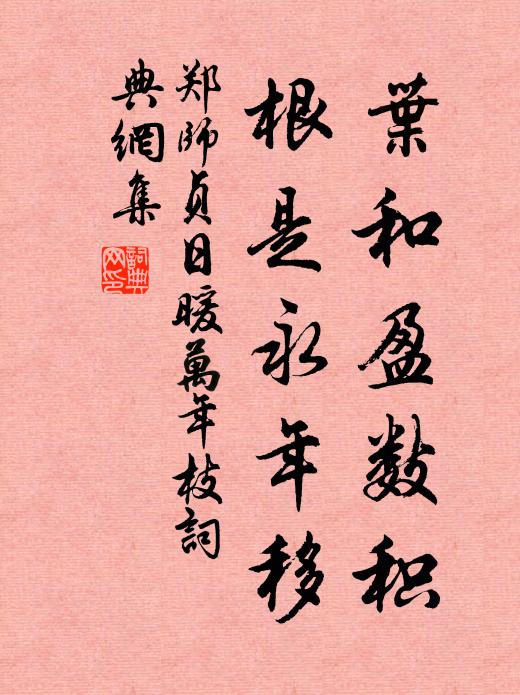 葉和盈数积
根是永年移
郑师贞日暖萬年枝詞
典網集
詞典网印